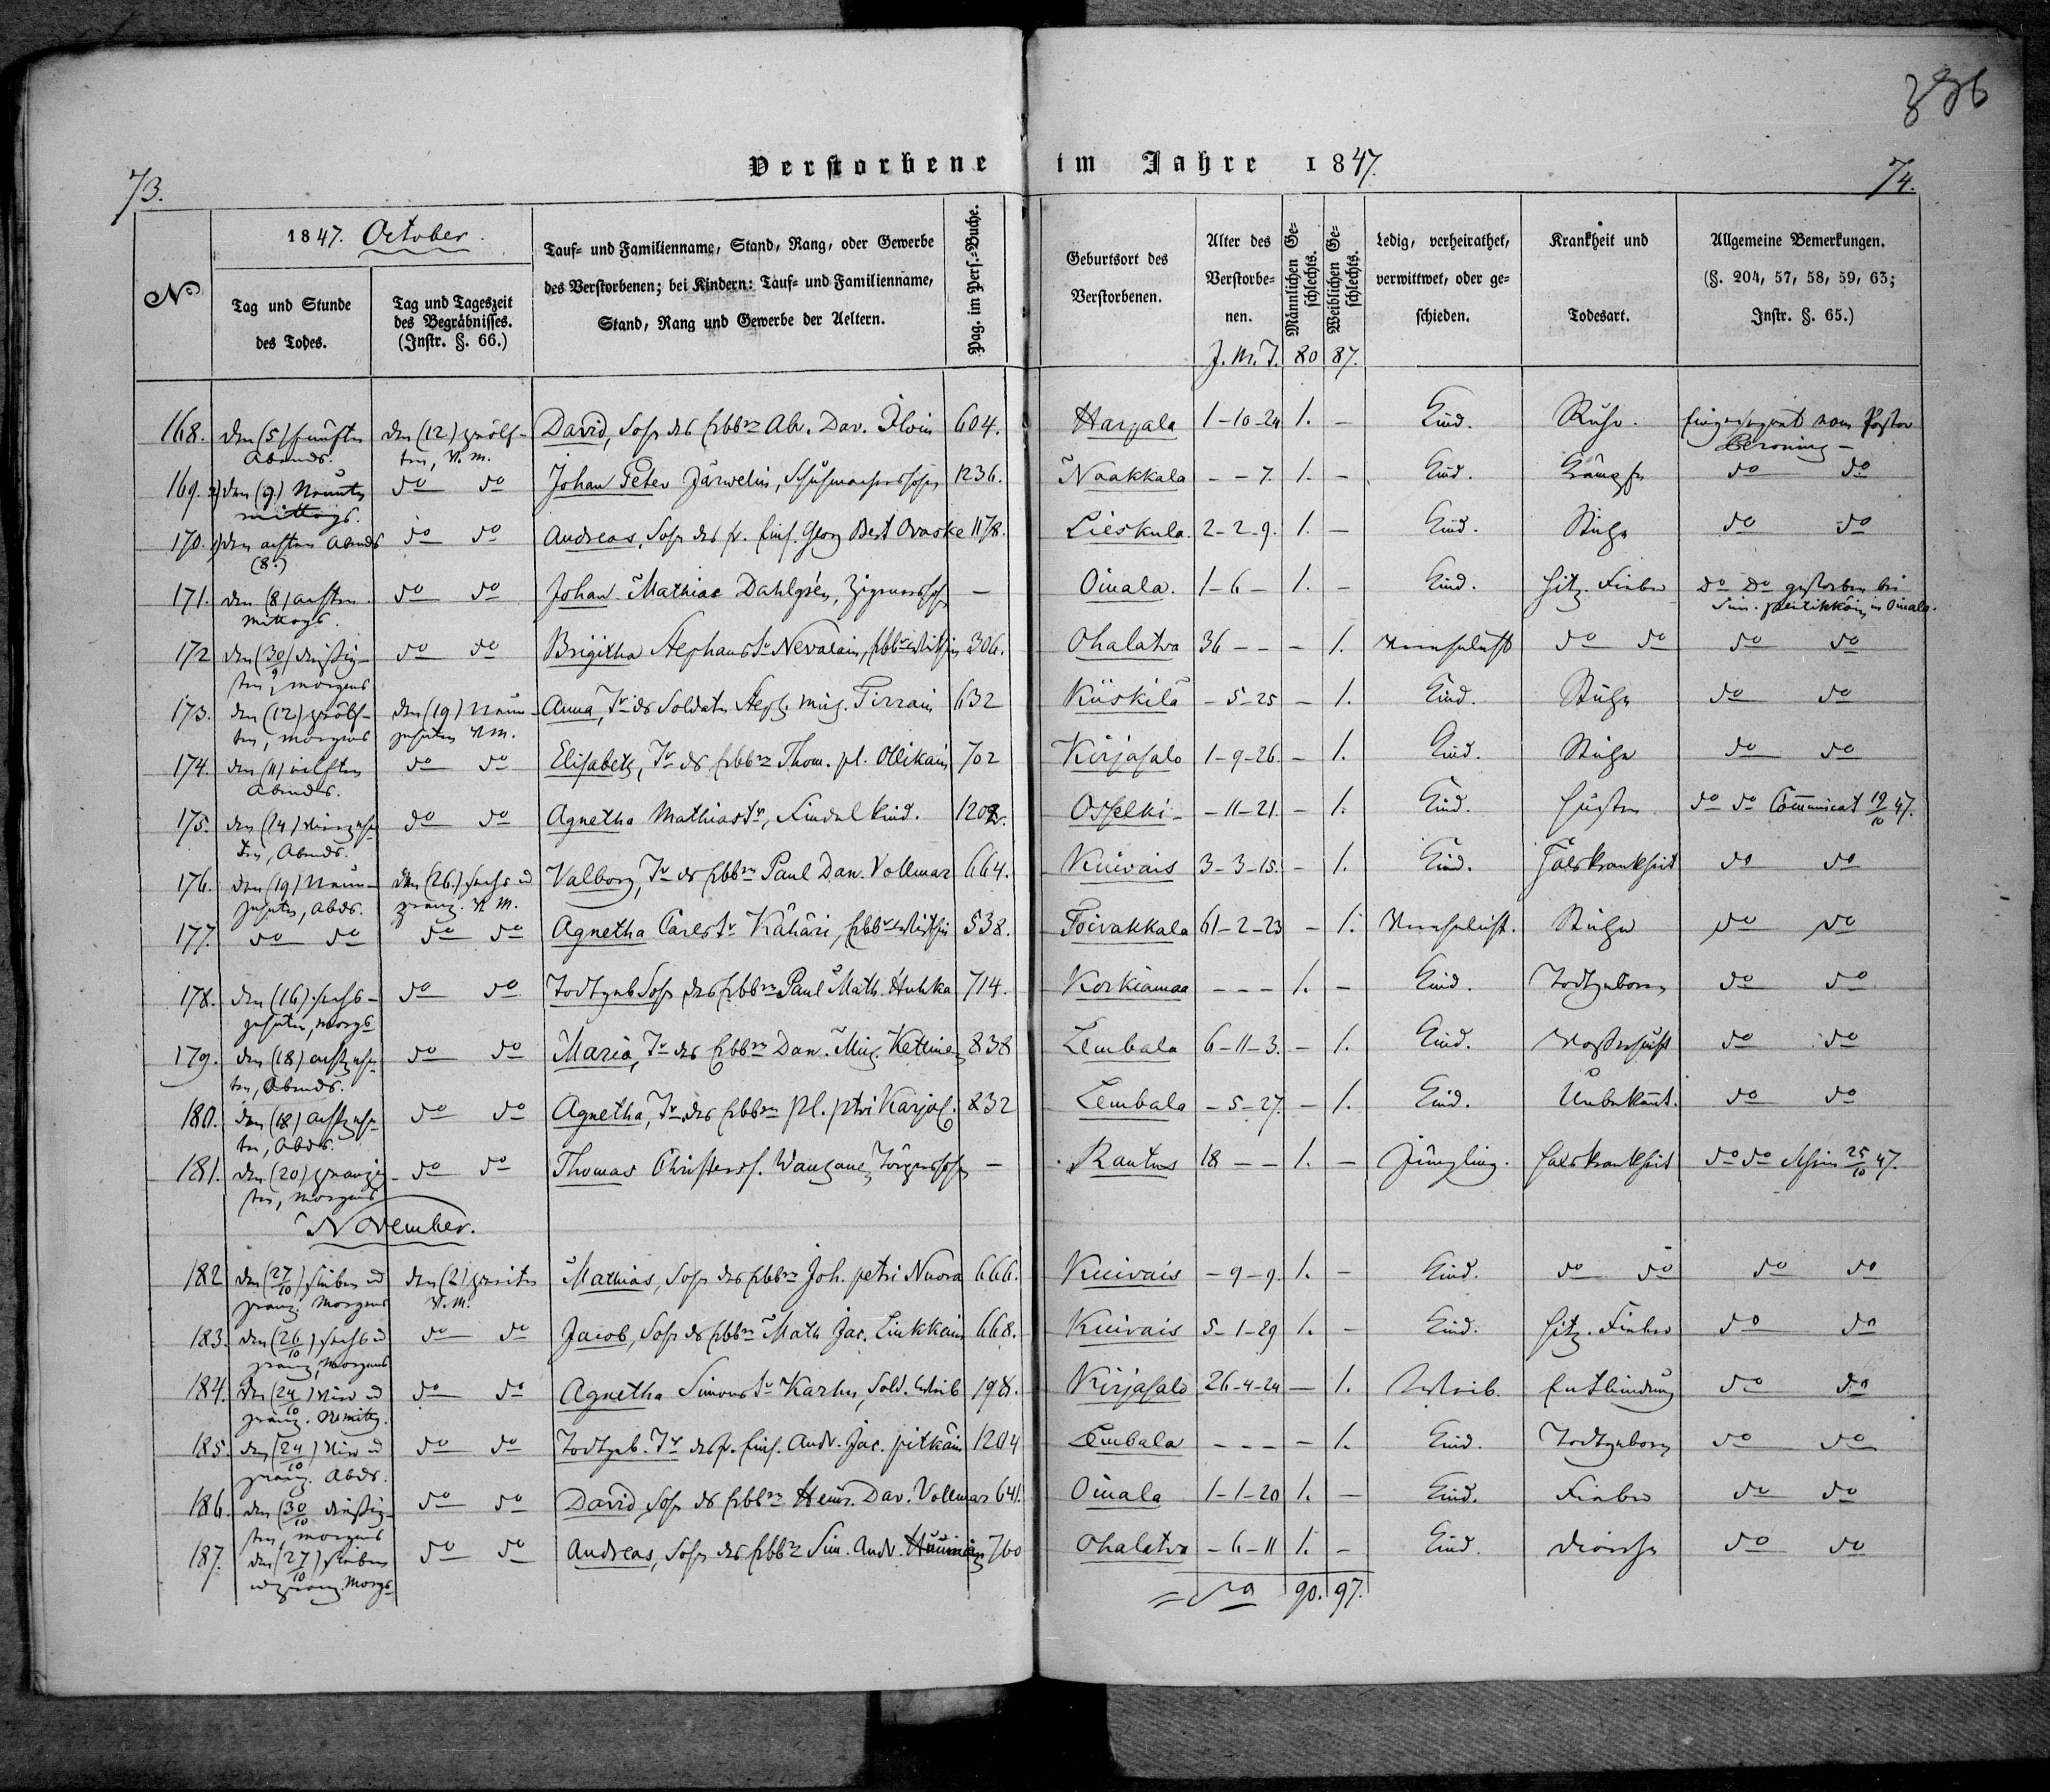 386
Verstorbene im Jahre 1847.
73.
74.
No
1847. October.
Tag und Stunde des Todes.
Tag und Tageszeit des Begräbnisses. (Instr. §. 66.)
Tauf- und Familienname, Stand, Rang, oder Gewerbe des Verstorbenen; bei Kindern: Tauf- und Familienname, Stand, Rang und Gewerbe der Aeltern.
Pag. im Pers.-Buche.
Geburtsort des Verstorbenen.
Alter des Verstorbenen.
J. M. T.
Männlichen Geschlechts.
80
Weiblichen Geschlechts.
87.
Ledig, verheirathet, verwittwet, oder geschieden.
Krankheit und Todesart.
Allgemeine Bemerkungen. (§. 204, 57, 58, 59, 63; Instr. §. 65.)
168. den (5) fünften Abends. den (12) zwölften, N. M. David, Sohn des Abr. Dav. Iloin 604. Harpala 1-10-24 1. - Kind. Ruhr. Eingesegnet vom Pastor
169. den (9.) Neunten mittags. do do Johan Peter Järwelin, Schuhmachersohn 1236. Naakkala - - 7. 1. - Kind. Krämpfe do do
170. den achten Abends (8.) do do Andreas, Sohn des fr. Einf. Georg Bert Ovaske 1178. Lieskula. 2-2-9. 1. - Kind. Ruhr do do
171. den (8) achten mittags. do do Johan Mathias Dahlgrén, - Oinala. 1-6- 1. - Kind. Hitz. Fieber do do gestorben bei Sim. Peitikkäin in Oinala.
172 den (30/9) dreißigsten, morgens do do Brigitha Stephans Tr Nevalain, 306. Ohalatva 36 - - - 1. do do do do
173. den (12) zwölften, morgens den (19) neunzehnten N.M. Anna, Tr des Soldaten Steph. Mich. Tirrain 632 Kiiskilä - 5-25 - 1. Kind. do do
174. den (11) eilften Abends. do do Elisabeth, Tr des Thom. pl. Ollikain 702 Kirjasalo 1-9-26. - 1. Kind. do do
175. den (14) vierzehnten, Abends. do do Agnetha Mathias Tr, Findelkind. 1202. Osselki - 11-21. - 1. Kind. Husten do do Communicat 19/10 47.
176. den (19) neunzehnten, Abds. den (26.) sechs u zwanz. N. M. Valborg, Tr des Paul Dan. Vollmar 664. Kuivais 3-3-15. - 1. Kind. Halskrankheit do do
177. do do do do Agnetha Carls Tr Kähäri, 538. Toivakkala 61-2-23 - 1. do do
178. den (16) sechszehnten, morgs do do Todtgeb Sohn des Paul Math. Huhka 714. Korkiamaa - - - 1. - Kind. Todtgeboren do do
179. den (18) achtzehnten, Abends. do do Maria, Tr des Dan. Mich. Kettinen 838 Lembala 6-11-3. - 1. Kind. Wassersucht do do
180. den (18) achtzehnten, Abds. do do Agnetha, Tr des pl. ptri Karjal. 832 Lembala - 5-27. - 1. Kind. Unbekant. do do
181. den (20) zwanzigsten, morgens do do Thomas Christers. - Rautus 18 - - 1. - Jüngling. Halskrankheit do do Schein 25/10 47.
November.
182 den (27/10) sieben u zwanz. Morgens den (2) zweiten N.M. Mathias, Sohn des Joh. petri Nuora 666. Kuivais - 9-9. 1. - Kind. do do do do
183. den (26/10) sechs u zwanz, morgens do do Jacob, Sohn des Math Jac. Liukkain 668. Kuivais 5-1-29 1. - Kind. Hitz. Fieber do do
184. den (24/10) vier u zwanz. do do Agnetha Simons Tr Karhu, Sold. Weib 198. Kirjasalo 26-4-24 - 1. Weib. Entbindung do do
185. den (24/10) vier u zwanz. Abds. do do Todtgeb. Tr des fr. Einf. Andr. Jac. pitkäin 1204 Lembala - - - - 1. Kind. Todtgeboren do do
186. den (30/10) dreißigsten, morgens do do David Sohn des Heinr. Dav. Vollmar 641. Oinala 1-1-20 1. - Kind. Fieber do do
187. den (27/10) sieben u zwanz. Morgs do do Andreas, Sohn des Sim. Andr. 760 Ohalatva - 6-11 1. - Kind. do do
90. 97.